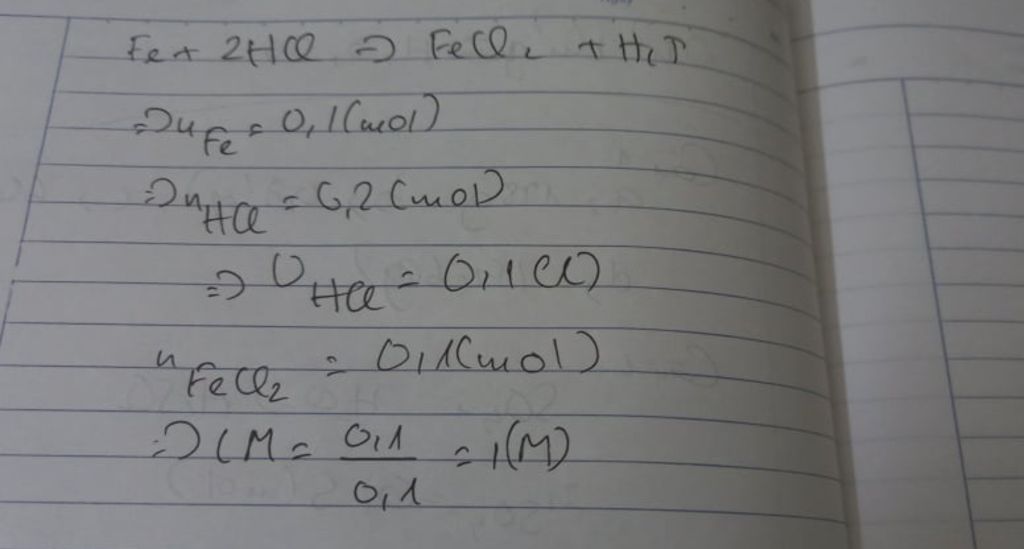 Fe + 2HCl => FeCl2 + H2↑
=> nFe = 0,1(mol)
=> nHCl = 0,2(mol)
=> VHCl = 0,1(l)
nFeCl2 = 0,1(mol)
=> CM = 0,1/0,1 = 1(M)